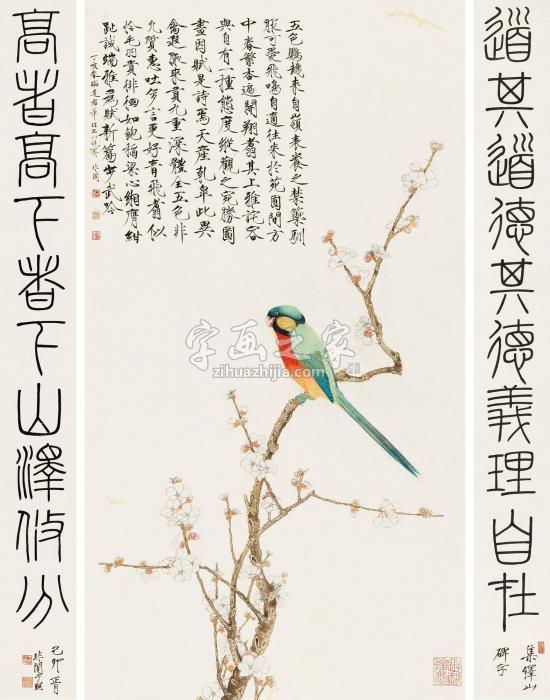 道其道德其德義理自在
集繹山
碑字
五色鸚鵡來自嶺表養之禁籞馴
服可愛飛鳴自適往來於苑囿間方
中春繁杏遍開翔翥其上雅詫容
與自有一種態度縱觀之宛勝圖
畫因賦是詩焉天產乾皋此異
禽遐陬來貢九重深體全五色非
凡質惠吐多言更好音飛翥似
憐毛羽貴徘徊如飽稻粱心緗膺紺
趾誠端雅為賦新篇步武吟
丁亥 非闇
高者高下者下山澤攸分
己卯
非闇
字画之家
zihuazhijia.com